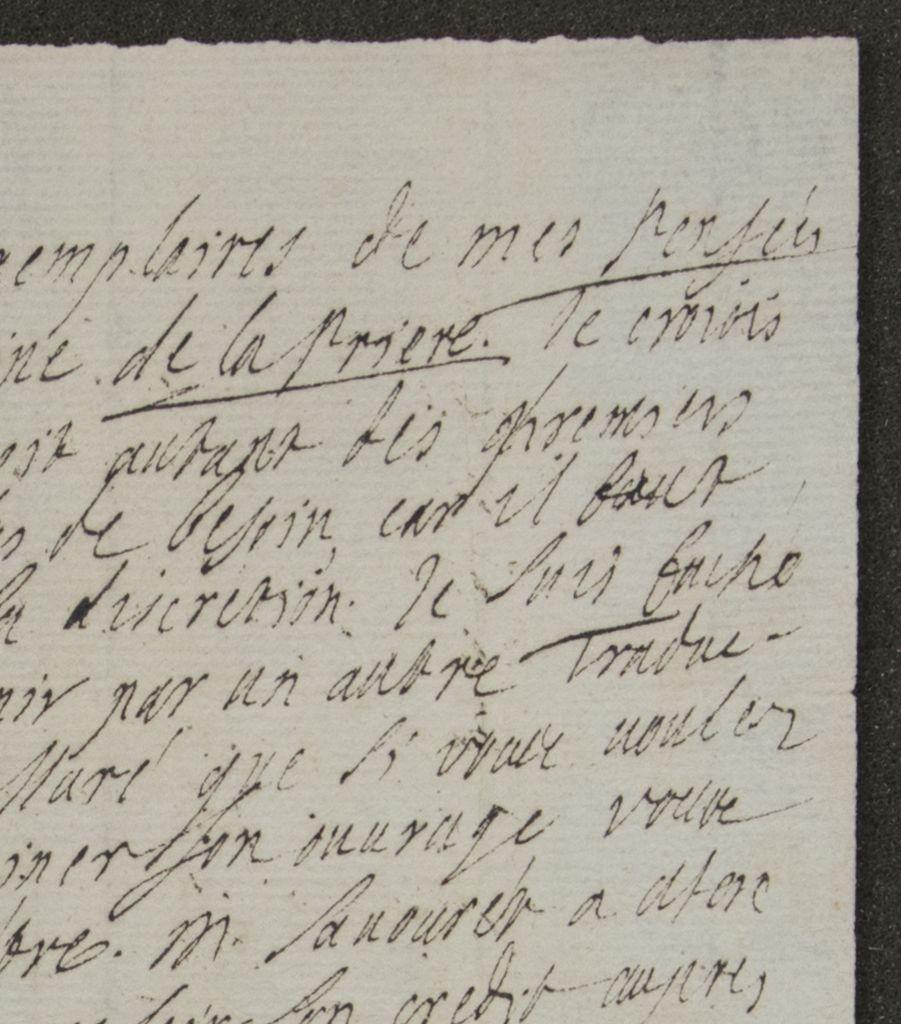 emplaires de mes Pensées
de la Priere. Je croiois
autant des premiers
de besoin, car il faut
discretion. Je suis faché
nir par un autre Traduc-
claré que si vous voulez
iner son ouvrage vous
tre. M. Savouret a
son credit aupres